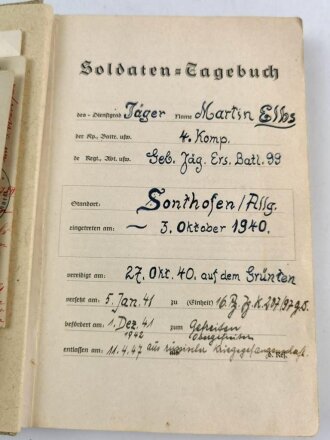 Soldaten=Tagebuch
des – Dienstgrad Jäger Name Martin Elbs
der Kp., Battr. usw. 4. Komp.
de Regt., Abt. usw. Geb. Jäg. Ers. Batl. 99
Standort: Sonthofen/Allg.
eingetreten am: ~ 3. Oktober 1940.
vereidigt am: 27. Okt. 40. auf dem Grünten
versetzt am: 5. Jan. 41 zu (Einheit) 16.
befördert am: 1. Dez. 41 zum Gefreiten
1942 Obergefreiten
entlassen am: 11.4.47 aus russischer Kriegsgefangenschaft